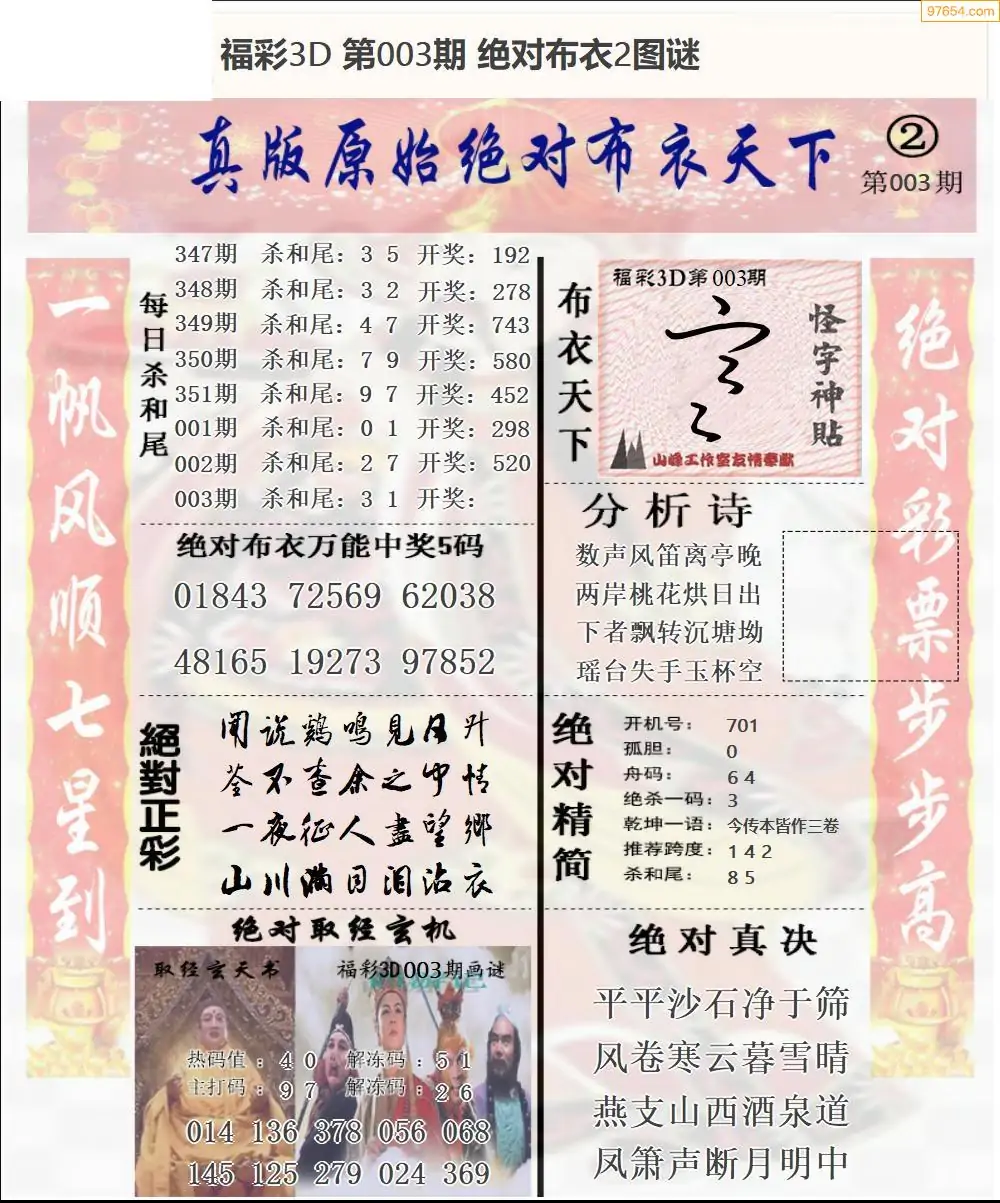 97654.com
福彩3D 第003期 绝对布衣2图谜
真版原始绝对布衣天下
②
第003期
一帆风顺七星到
每日杀和尾
347期 杀和尾：3 5 开奖：192
348期 杀和尾：3 2 开奖：278
349期 杀和尾：4 7 开奖：743
350期 杀和尾：7 9 开奖：580
351期 杀和尾：9 7 开奖：452
001期 杀和尾：0 1 开奖：298
002期 杀和尾：2 7 开奖：520
003期 杀和尾：3 1 开奖：
绝对布衣万能中奖5码
01843 72569 62038
48165 19273 97852
絕對正彩
闻说鷄鸣见日升
荃不查余之中情
一夜征人盡望鄉
山川满目泪沾衣
绝对取经玄机
取经玄天书
福彩3D003期画谜
热码值：4 0 解冻码：5 1
主打码：9 7 解冻码：2 6
014 136 378 056 068
145 125 279 024 369
布衣天下
福彩3D第003期
怪字神貼
山峰工作室友情奉献
分析诗
数声风笛离亭晚
两岸桃花烘日出
下者飘转沉塘坳
瑶台失手玉杯空
绝对精简
开机号： 701
孤胆： 0
舟码： 6 4
绝杀一码：3
乾坤一语：今传本皆作三卷
推荐跨度：1 4 2
杀和尾： 8 5
绝对真决
平平沙石净于筛
风卷寒云暮雪晴
燕支山西酒泉道
凤箫声断月明中
绝对彩票步步高